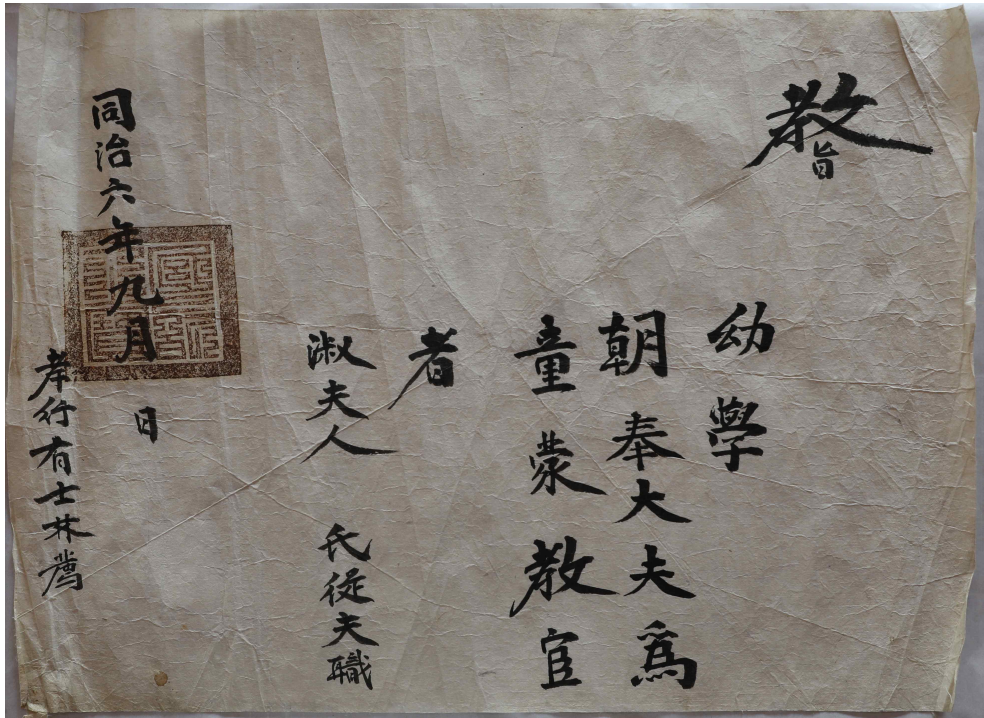 教旨
幼學
朝奉大夫爲
童蒙教官
者
淑夫人 氏從夫職
同治六年九月 日
孝行有士林薦